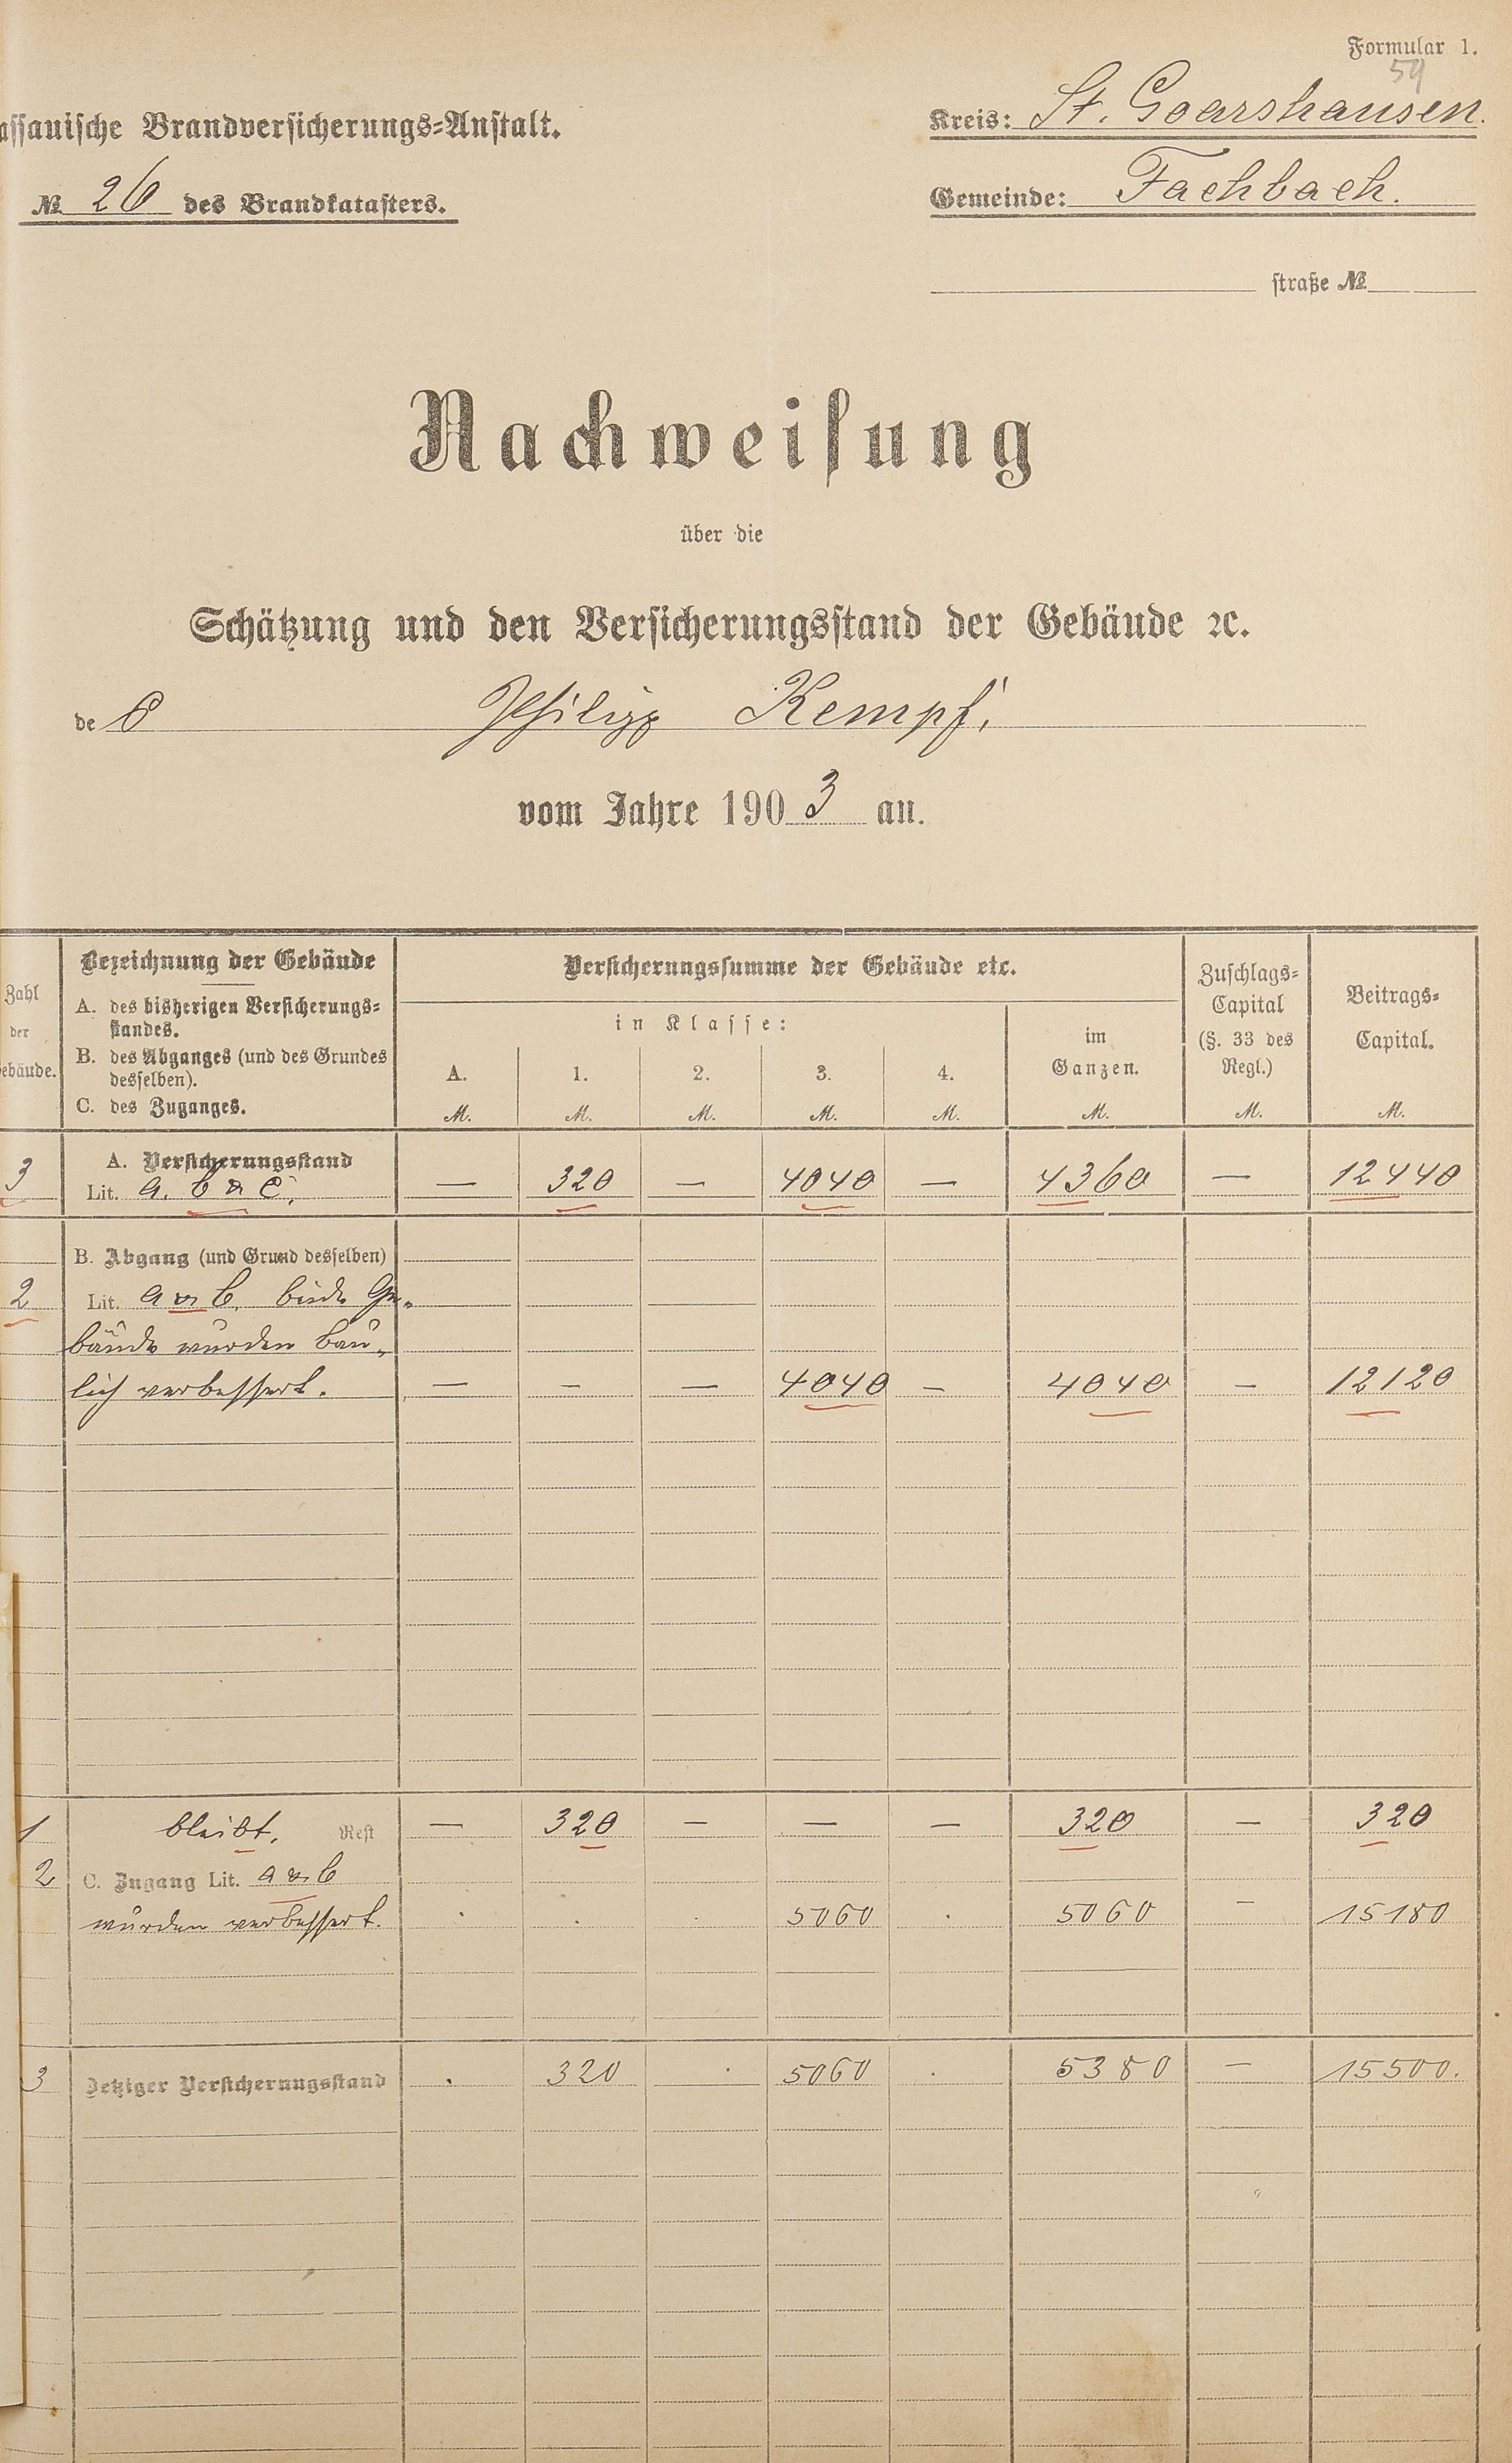 Formular 1.
59
assauische Brandversicherungs-Anstalt.
Kreis: St. Goarshausen.
№ 26 des Brandkatasters.
Gemeinde: Fachbach.
straße №
Nachweisung
über die
Schätzung und den Versicherungsstand der Gebäude ꝛc.
des Philipp Kempf,
vom Jahre 1903 an.
Zahl der ebäude.
Bezeichnung der Gebäude
A. des bisherigen Versicherungs-
standes.
B. des Abganges (und des Grundes
desselben).
C. des Zuganges.
Versicherungssumme der Gebäude etc.
in Klasse:
A. 1. 2. 3. 4.
im Ganzen.
Zuschlags-
Capital
(§. 33 des
Regl.)
Beitrags-
Capital.
M. M. M. M. M. M. M. M.
A. Versicherungsstand
3 Lit. a. b & c. — 320 — 4040 — 4360 — 12440
B. Abgang (und Grund desselben)
2 Lit. a & b. beide Ge-
bäude wurden bau-
lich verbessert. — — — 4040 — 4040 — 12120
1 bleibt, Rest — 320 — — — 320 — 320
2 C. Zugang Lit. a & b
wurden verbessert. . . . 5060 . 5060 — 15180
3 Jetziger Versicherungsstand . 320 . 5060 . 5380 — 15500.